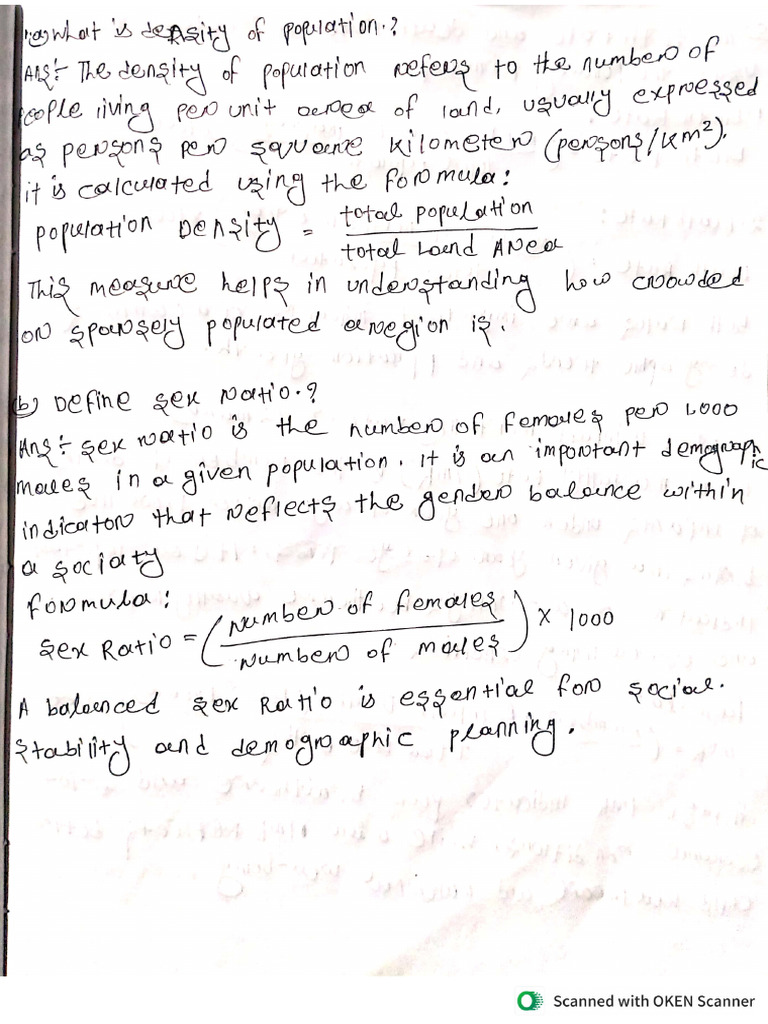 (a) What is density of population.?
Ans:- The density of population refers to the number of
people living per unit area of land, usually expressed
as persons per square kilometer (persons/km²).
it is calculated using the formula:
population Density = total population / total Land Area
This measure helps in understanding how crowded
or sparsely populated a region is.
(b) Define sex ratio.?
Ans:- sex ratio is the number of females per 1000
males in a given population. it is an important demographic
indicator that reflects the gender balance within
a sociaty
formula:
Sex Ratio = (Number of females / Number of males) × 1000
A balanced sex Ratio is essential for social.
stability and demographic planning.
Scanned with OKEN Scanner